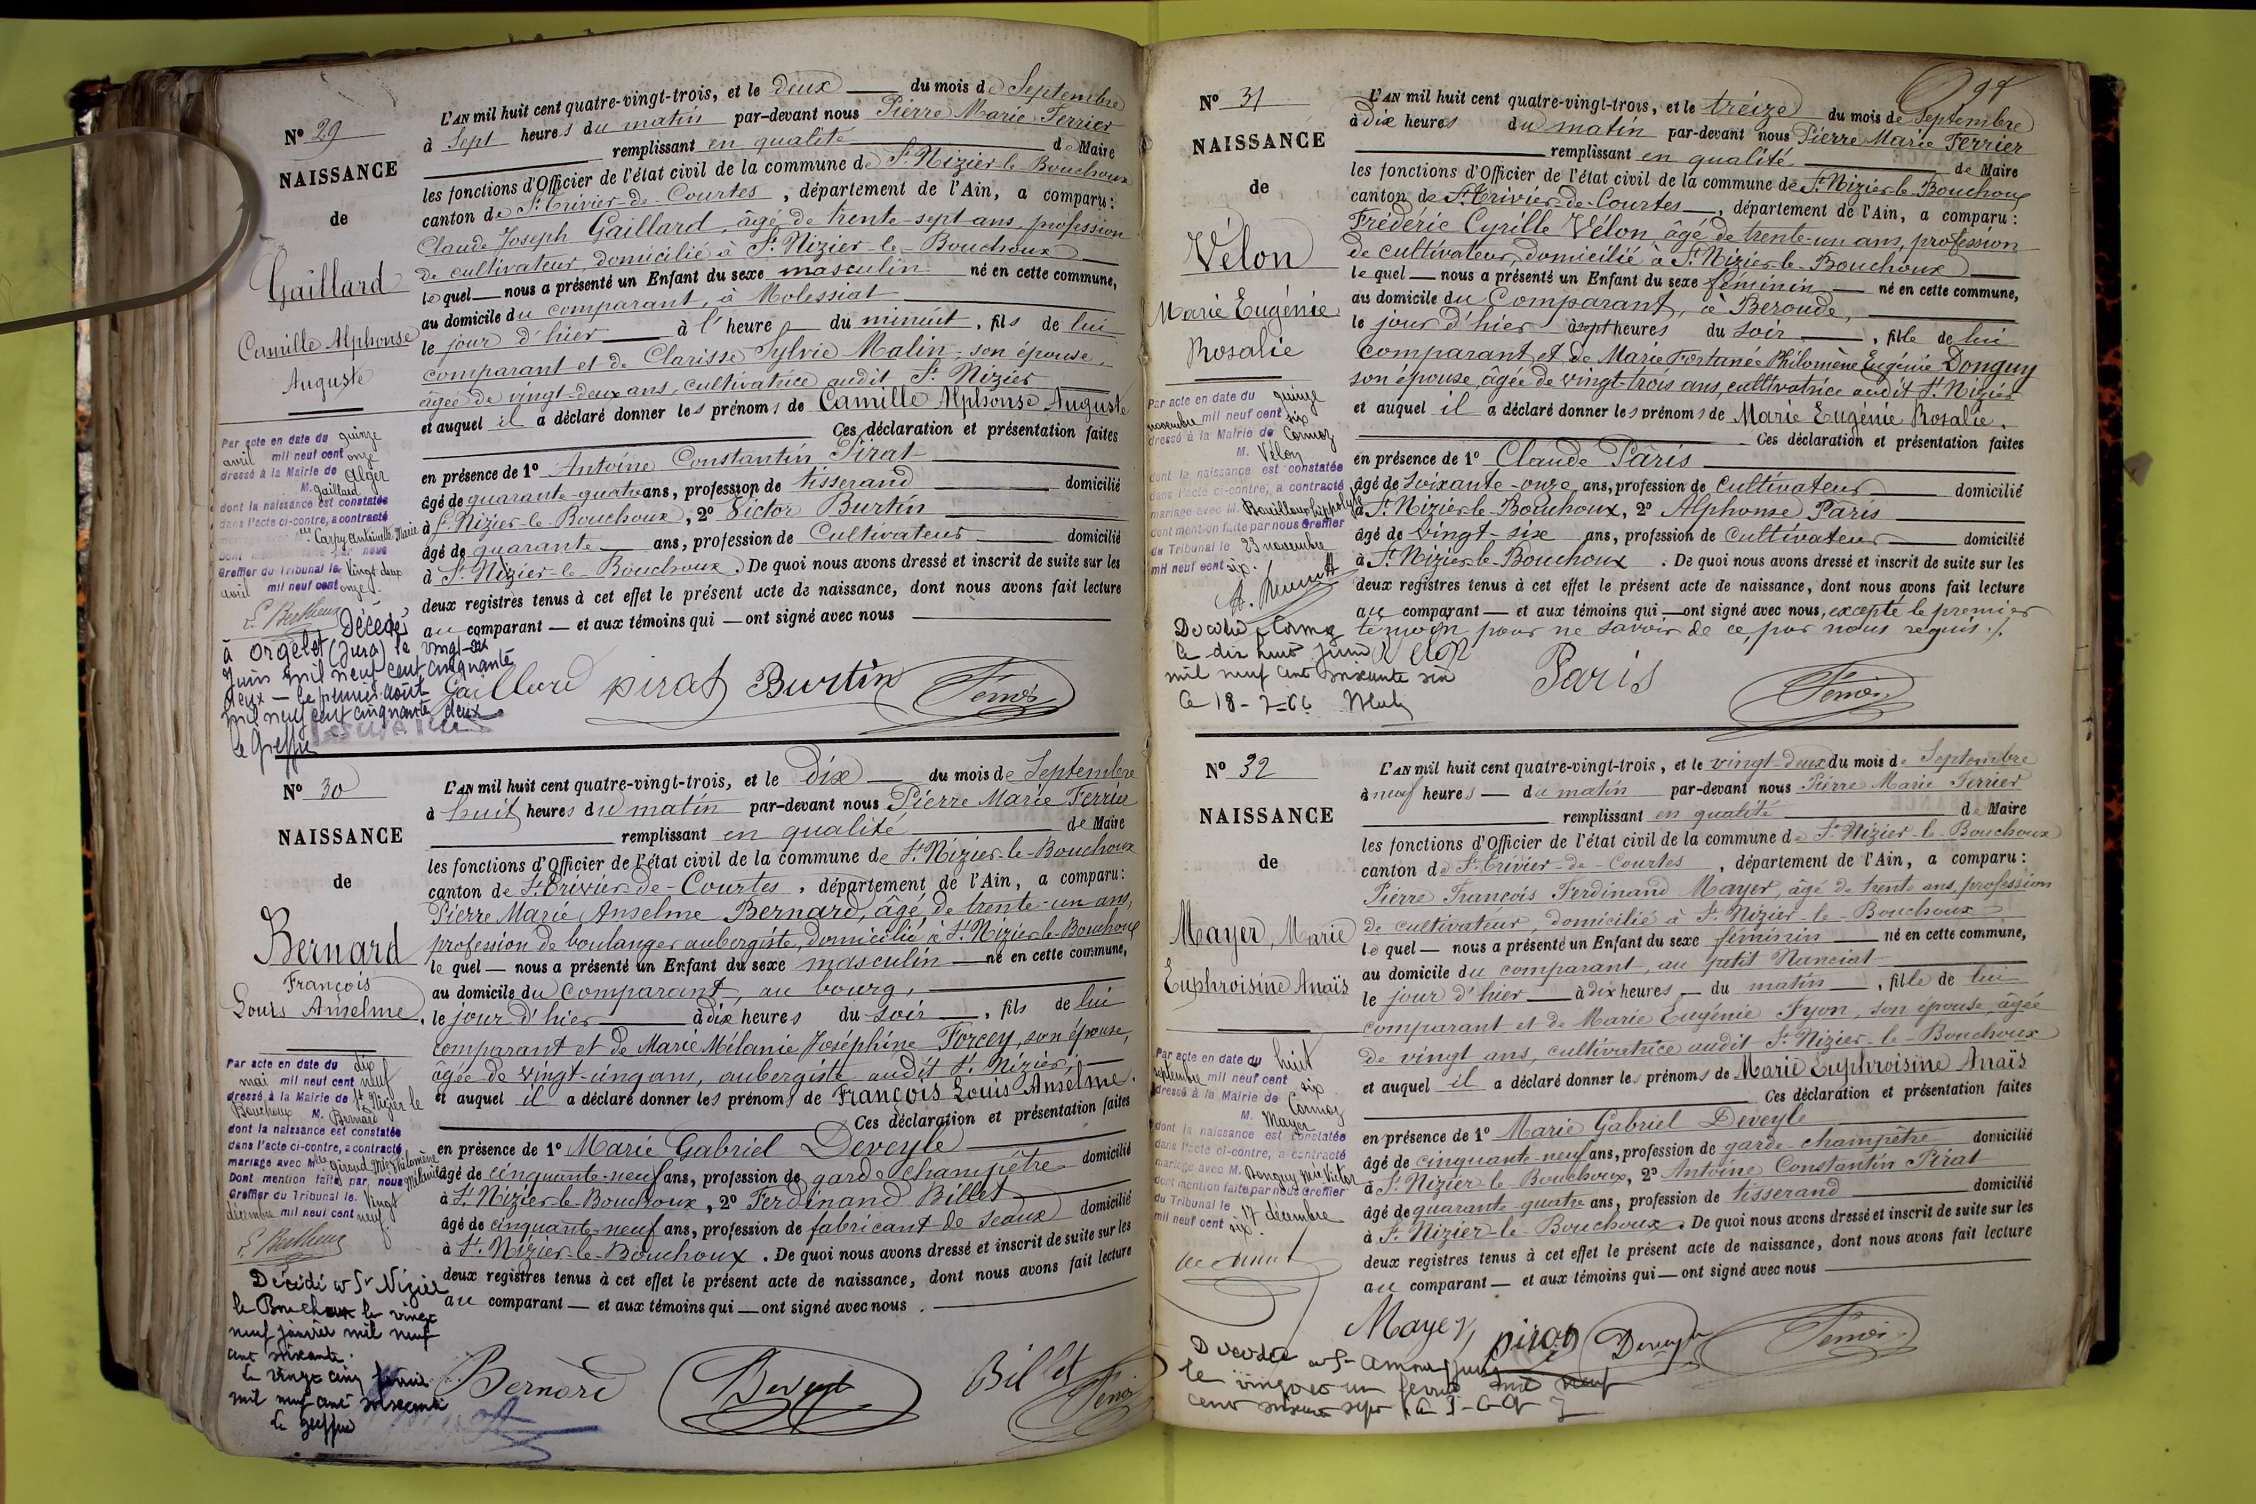 Nº 29
NAISSANCE
de
Gaillard
Camille Alphonse
Auguste
Par acte en date du quinze
avril mil neuf cent onze
dressé à la Mairie de Alger
M. Gaillard
dont la naissance est constatée
dans l'acte ci-contre, a contracté
Carpy Antoinette Marie
Dont mention faite par nous
Greffier du Tribunal le vingt deux
avril mil neuf cent onze.
Décédé
à Orgelet (Jura) le vingt-six
Juin mil neuf cent cinquante
deux — le premier août
mil neuf cent cinquante deux
Le Greffier
L'AN mil huit cent quatre-vingt-trois, et le deux du mois de Septembre
à Sept heures du matin par-devant nous Pierre Marie Ferrier
remplissant en qualité de Maire
les fonctions d'Officier de l'état civil de la commune de St Nizier-le-Bouchoux
canton de St Trivier-de-Courtes, département de l'Ain, a comparu:
Claude Joseph Gaillard, âgé de trente-sept ans, profession
de cultivateur, domicilié à St Nizier-le-Bouchoux
lequel — nous a présenté un Enfant du sexe masculin né en cette commune,
au domicile du comparant, à Molessiat
le jour d'hier à l'heure du minuit, fils de lui
comparant et de Clarisse Sylvie Malin, son épouse,
âgée de vingt-deux ans, cultivatrice audit St Nizier
et auquel il a déclaré donner les prénoms de Camille Alphonse Auguste
Ces déclaration et présentation faites
en présence de 1º Antoine Constantin Pirat
âgé de quarante-quatre ans, profession de tisserand domicilié
à St Nizier-le-Bouchoux, 2º Victor Burtin
âgé de quarante ans, profession de Cultivateur domicilié
à St Nizier-le-Bouchoux. De quoi nous avons dressé et inscrit de suite sur les
deux registres tenus à cet effet le présent acte de naissance, dont nous avons fait lecture
au comparant — et aux témoins qui — ont signé avec nous
Gaillard pirat Burtin Ferrier
Nº 30
NAISSANCE
de
Bernard
François
Louis Anselme
Par acte en date du dix
mai mil neuf cent neuf
dressé à la Mairie de St Nizier le
Bouchoux M. Bernard
dont la naissance est constatée
dans l'acte ci-contre, a contracté
mariage avec Mlle Giraud Mie Philomène
Mélanie
Dont mention faite par nous
Greffier du Tribunal le vingt
décembre mil neuf cent neuf
Décédé à St Nizier
le Bouchoux le vingt
neuf janvier mil neuf
cent soixante.
Le vingt cinq février
mil neuf cent soixante
Le greffier
L'AN mil huit cent quatre-vingt-trois, et le dix du mois de Septembre
à huit heures du matin par-devant nous Pierre Marie Ferrier
remplissant en qualité de Maire
les fonctions d'Officier de l'état civil de la commune de St Nizier-le-Bouchoux
canton de St Trivier-de-Courtes, département de l'Ain, a comparu:
Pierre Marie Anselme Bernard, âgé de trente-un ans,
profession de boulanger aubergiste, domicilié à St Nizier-le-Bouchoux
lequel — nous a présenté un Enfant du sexe masculin — né en cette commune,
au domicile du comparant, au bourg,
le jour d'hier à dix heures du soir, fils de lui
comparant et de Marie Mélanie Joséphine Forcey, son épouse,
âgée de vingt-cinq ans, aubergiste audit St Nizier,
et auquel il a déclaré donner les prénoms de François Louis Anselme.
Ces déclaration et présentation faites
en présence de 1º Marie Gabriel Deveyle
âgé de cinquante-neuf ans, profession de garde champêtre domicilié
à St Nizier-le-Bouchoux, 2º Ferdinand Billet
âgé de cinquante-neuf ans, profession de fabricant de seaux domicilié
à St Nizier-le-Bouchoux. De quoi nous avons dressé et inscrit de suite sur les
deux registres tenus à cet effet le présent acte de naissance, dont nous avons fait lecture
au comparant — et aux témoins qui — ont signé avec nous.
Bernard Deveyle Billet Ferrier
Nº 31
NAISSANCE
de
Vélon
Marie Eugénie
Rosalie
Par acte en date du quinze
novembre mil neuf cent six
dressé à la Mairie de Cormoz
M. Vélon
dont la naissance est constatée
dans l'acte ci-contre, a contracté
mariage avec M. Bouilloux Hippolyte
dont mention faite par nous Greffier
du Tribunal le 23 novembre
mil neuf cent six.
Décédée à Cormoz
le dix huit juin
mil neuf cent soixante six
Le 18-7-66
L'AN mil huit cent quatre-vingt-trois, et le treize du mois de Septembre
à dix heures du matin par-devant nous Pierre Marie Ferrier
remplissant en qualité de Maire
les fonctions d'Officier de l'état civil de la commune de St Nizier-le-Bouchoux
canton de St Trivier-de-Courtes, département de l'Ain, a comparu:
Frédéric Cyrille Vélon, âgé de trente-un ans, profession
de cultivateur, domicilié à St Nizier-le-Bouchoux
lequel — nous a présenté un Enfant du sexe féminin — né en cette commune,
au domicile du comparant, à Beroude,
le jour d'hier à sept heures du soir, fille de lui
comparant et de Marie Fortunée Philomène Eugénie Donguy
son épouse, âgée de vingt-trois ans, cultivatrice audit St Nizier
et auquel il a déclaré donner les prénoms de Marie Eugénie Rosalie.
Ces déclaration et présentation faites
en présence de 1º Claude Paris
âgé de soixante-onze ans, profession de cultivateur domicilié
à St Nizier-le-Bouchoux, 2º Alphonse Paris
âgé de vingt-six ans, profession de cultivateur domicilié
à St Nizier-le-Bouchoux. De quoi nous avons dressé et inscrit de suite sur les
deux registres tenus à cet effet le présent acte de naissance, dont nous avons fait lecture
au comparant — et aux témoins qui — ont signé avec nous, excepté le premier
témoin pour ne savoir de ce par nous requis./.
Velon Paris Ferrier
Nº 32
NAISSANCE
de
Mayer, Marie
Euphroisine Anaïs
Par acte en date du huit
septembre mil neuf cent six
dressé à la Mairie de Cormoz
M. Mayer
dont la naissance est constatée
dans l'acte ci-contre, a contracté
mariage avec M. Donguy Mie Victor
dont mention faite par nous Greffier
du Tribunal le 17 décembre
mil neuf cent six.
Décédée à St Amour (Jura)
le vingt et un février mil neuf
cent soixante sept
L'AN mil huit cent quatre-vingt-trois, et le vingt-deux du mois de Septembre
à neuf heures — du matin par-devant nous Pierre Marie Ferrier
remplissant en qualité de Maire
les fonctions d'Officier de l'état civil de la commune de St Nizier-le-Bouchoux
canton de St Trivier-de-Courtes, département de l'Ain, a comparu:
Pierre François Ferdinand Mayer, âgé de trente ans, profession
de cultivateur, domicilié à St Nizier-le-Bouchoux
lequel — nous a présenté un Enfant du sexe féminin né en cette commune,
au domicile du comparant, au petit Nanciat
le jour d'hier — à dix heures — du matin, fille de lui
comparant et de Marie Eugénie Fyon, son épouse, âgée
de vingt ans, cultivatrice audit St Nizier-le-Bouchoux
et auquel il a déclaré donner les prénoms de Marie Euphroisine Anaïs
Ces déclaration et présentation faites
en présence de 1º Marie Gabriel Deveyle
âgé de cinquante-neuf ans, profession de garde champêtre domicilié
à St Nizier-le-Bouchoux, 2º Antoine Constantin Pirat
âgé de quarante-quatre ans, profession de tisserand domicilié
à St Nizier-le-Bouchoux. De quoi nous avons dressé et inscrit de suite sur les
deux registres tenus à cet effet le présent acte de naissance, dont nous avons fait lecture
au comparant — et aux témoins qui — ont signé avec nous
Mayer pirat Deveyle Ferrier